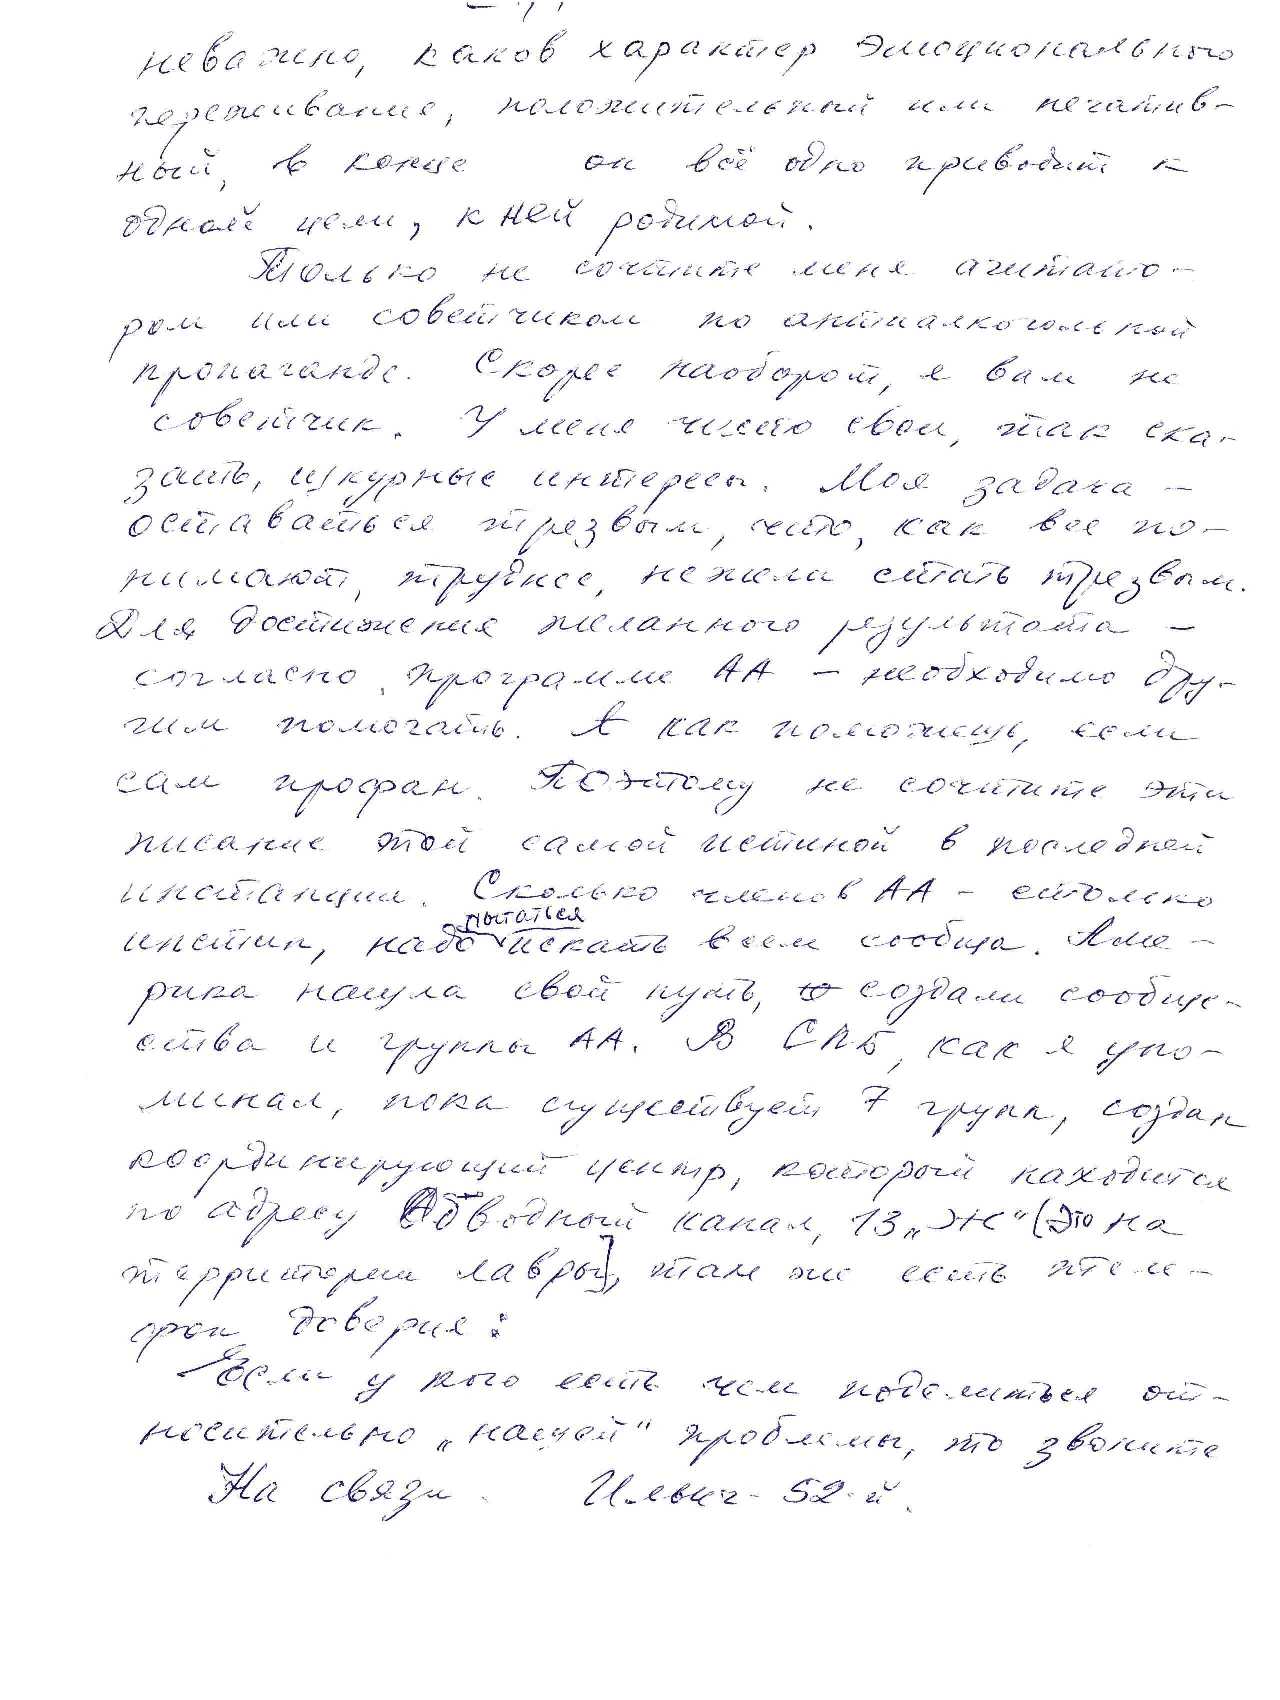 неважно, каков характер эмоционального
переживание, положительный или негатив-
ный, в конце он всё одно приводит к
одной цели, к ней родимой.
Только не сочтите меня агитато-
ром или советчиком по антиалкогольной
пропаганде. Скорее наоборот, я вам не
советчик. У меня чисто свои, так ска-
зать, шкурные интересы. Моя задача -
оставаться трезвым, что, как все по-
нимают, труднее, нежели стать трезвым.
Для достижения желанного результата -
согласно программе АА - необходимо дру-
гим помогать. А как поможешь, если
сам профан. Поэтому не сочтите эти
писание той самой истиной в последней
инстанции. Сколько членов АА - столько
пытаться
истин, надо искать всем сообща. Аме-
рика нашла свой путь, создали сообще-
ства и группы АА. В СПБ, как я упо-
минал, пока существует 7 групп, создан
координирующий центр, который находится
по адресу Обводный канал, 13 „Ж“ (Это на
территории лавры), там же есть теле-
фон доверия:
Если у кого есть чем поделиться от-
носительно „нашей“ проблемы, то звоните
На связи. Ильич- 52-й.